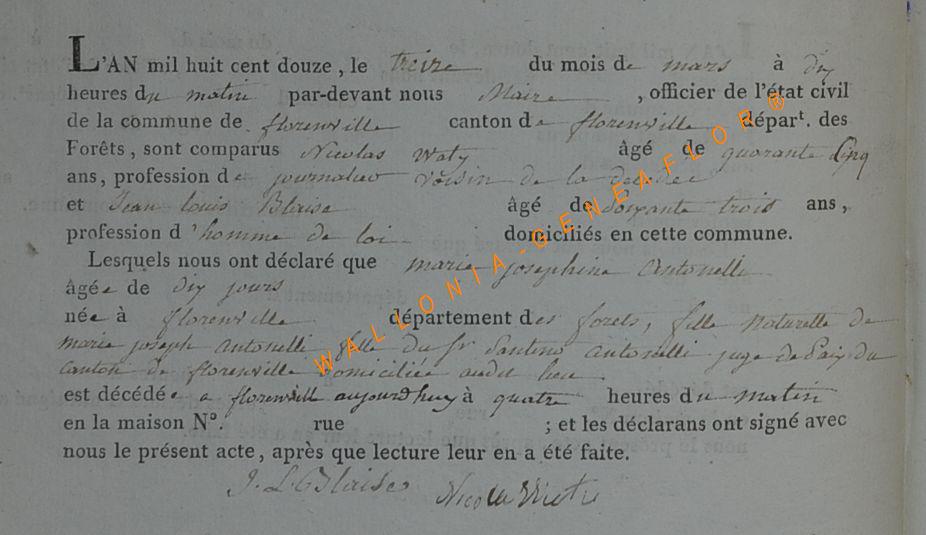 L'AN mil huit cent douze, le treize du mois de mars à dix
heures du matin par-devant nous Maire, officier de l'état civil
de la commune de florenville canton de florenville départ. des
Forêts, sont comparus Nicolas Waty âgé de quarante Cinq
ans, profession de journalier voisin de la décédée
et Jean louis Blaise âgé de Soixante trois ans,
profession d'homme de loi domiciliés en cette commune.
Lesquels nous ont déclaré que marie josephine Antonelli
âgée de Dix jours
née à florenville département des forets, fille Naturelle de
marie joseph Antonelli fille du Sr Santino Antonelli juge de Paix du
Canton de florenville Domiciliée audit lieu
est décédée a florenville aujourdhuy à quatre heures du matin
en la maison N°. rue ; et les déclarans ont signé avec
nous le présent acte, après que lecture leur en a été faite.
J. L. Blaise Nicolas
WALLONIA-GENEAFLOR®